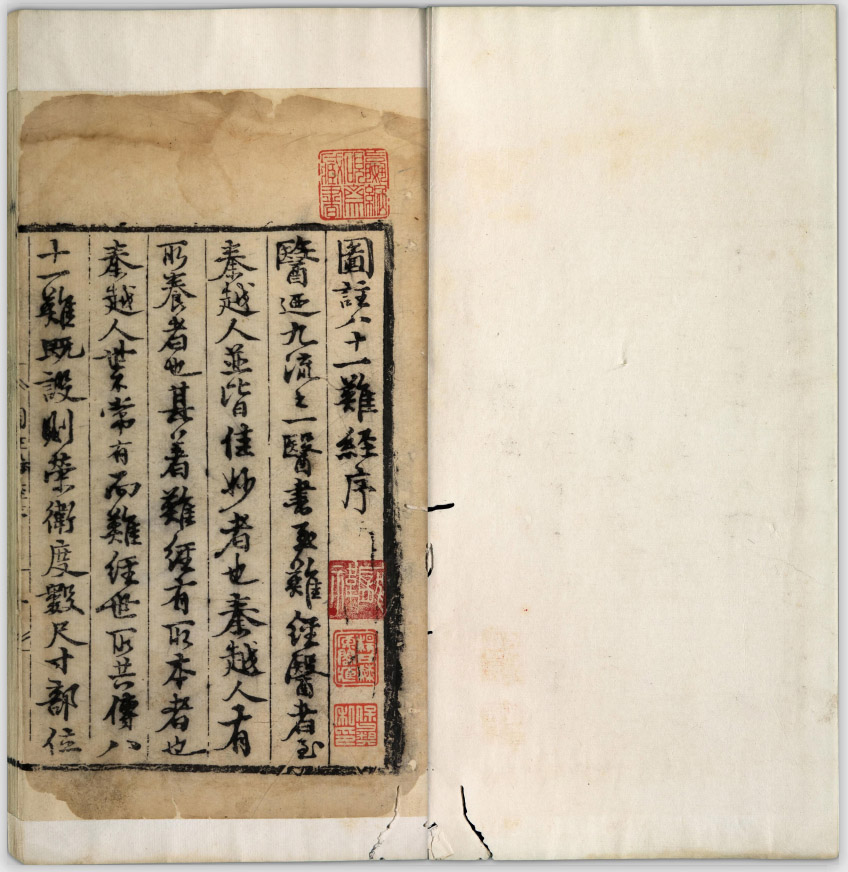 圖註八十一難經序
醫迺九流之一醫書至難經醫者至
秦越人並皆佳妙者也秦越人有
所養者也其著難經有所本者也
秦越人業不常有而難經世所共傳八
十一難既設則榮衛度數尺寸部位